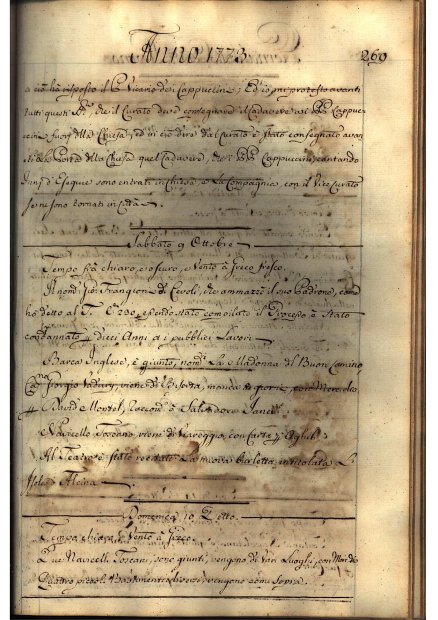 Anno 1773. 269
a ciò hà risposto il P. Vicario de i Cappuccini; Ed io mi protesto avanti
tutti questi che il Curato deve consegnare il Cadavere ai PP. Cappuc=
cini fuori della Chiesa, ed in ciò dire dal Curato è stato consegnato avan
ti della Chiesa quel Cadavere, e i PP. Cappuccini cantando
Inni d'Esequie sono entrati in Chiesa, e la Compagnia, con il Vice Curato
se ne sono tornati in Città.
Sabbato 9 Ottobre
Tempo frà chiaro, e oscuro, e Vento à Greco fresco.
Al nom.º Gio: Frangioni di Cevoli, che ammazzò il suo Padrone, come
hò detto al T. 200, essendo stato compilato il Processo è stato
condannato p. dieci Anni a i pubblici Lavori.
Barca Inglese, è giunta, nom.ª La Madonna del Buon Camino
Giorgio viene di manca giorni, con Merc.
p. David e Montel, Raccom. à Salvadore
Navicello Toscano viene di Viareggio, con Carta,
Al Teatro è stato recitato la nuova Burletta, intitolata L'
Isola d'Alcina.
Domenica 10 Detto.
Tempo chiaro, e Vento à Greco.
Due Navicelli Toscani, sono giunti, vengono da vari Luoghi, con
Quattro piccoli Bastimenti vengono come sopra.